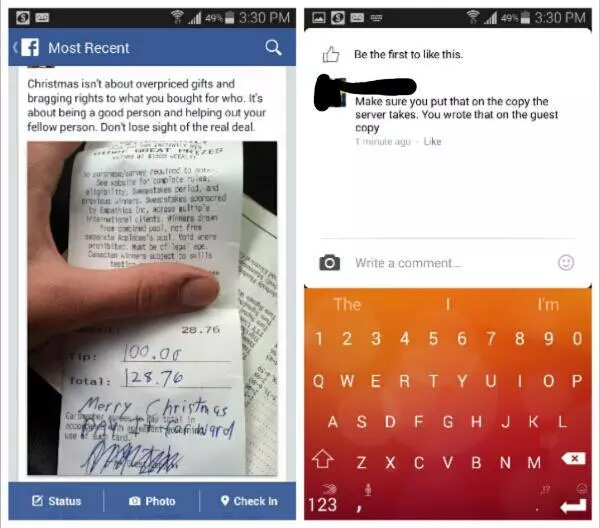 49% 3:30 PM
f Most Recent
Christmas isn't about overpriced gifts and
bragging rights to what you bought for who. It's
about being a good person and helping out your
fellow person. Don't lose sight of the real deal.
other GREAT PRIZES
No purchase/survey required to enter.
See website for complete rules,
eligibility, Sweepstakes period, and
previous winners. Sweepstakes sponsored
by Empathica Inc, across multiple
international clients. Winners drawn
from combined pool, not from
separate Applebee's pool. Void where
prohibited. Must be of legal age.
Canadian winners subject to skills
28.76
Tip: 100.00
Total: 128.76
Merry Christmas
Pay it forward
Cardmember agrees to pay total in
accordance with agreement governing
use of such card.
Status
Photo
Check In
49% 3:30 PM
Be the first to like this.
Make sure you put that on the copy the
server takes. You wrote that on the guest
copy
1 minute ago · Like
Write a comment...
The I I'm
1 2 3 4 5 6 7 8 9 0
Q W E R T Y U I O P
A S D F G H J K L
Z X C V B N M
123 , .